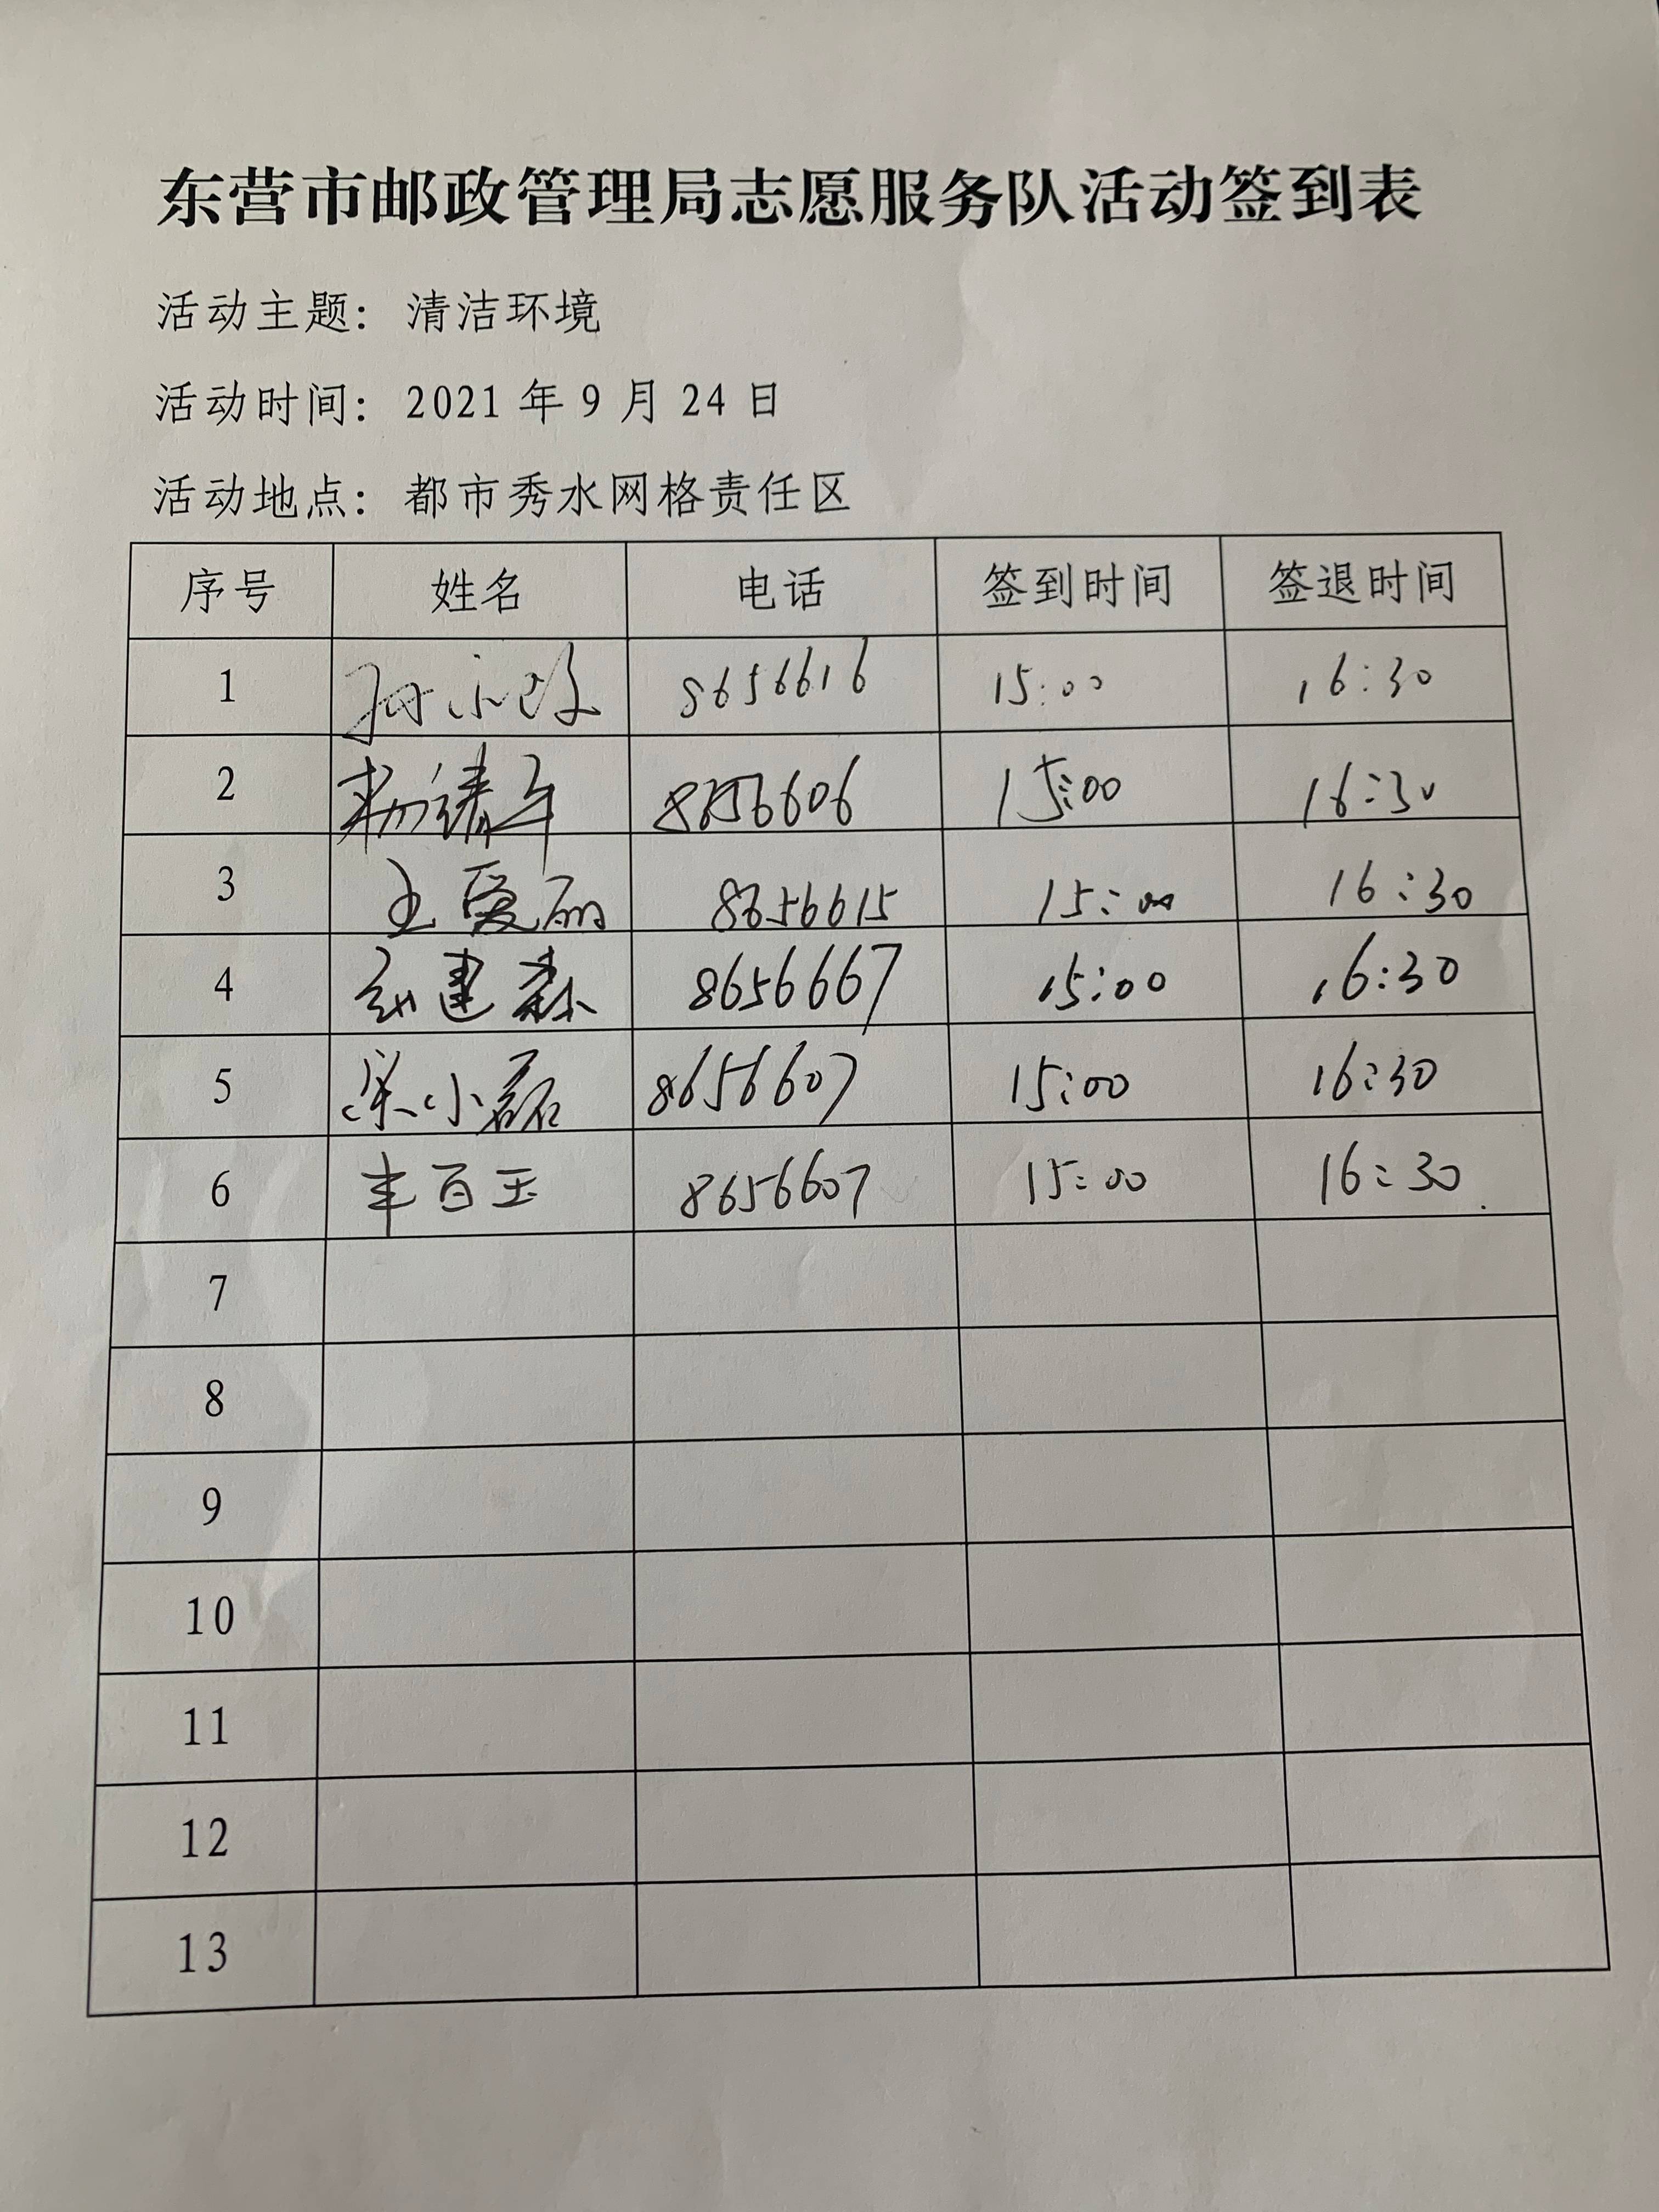 东营市邮政管理局志愿服务队活动签到表
活动主题：清洁环境
活动时间：2021年9月24日
活动地点：都市秀水网格责任区
序号 姓名 电话 签到时间 签退时间
1 8656616 15:00 16:30
2 8656606 15:00 16:30
3 王爱丽 8656615 15:00 16:30
4 8656667 15:00 16:30
5 梁小磊 8656607 15:00 16:30
6 丰百玉 8656607 15:00 16:30
7
8
9
10
11
12
13